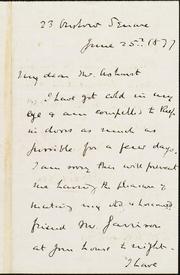 23 Onslow Square
June 25th 1877
My dear Mr. Ashurst
I have got cold in my
eye & am compelled to keep
in doors as much as
possible for a few days.
I am sorry this will prevent
me having the pleasure of
meeting my old & honoured
friend Mr Garrison
at your house to night.
I have